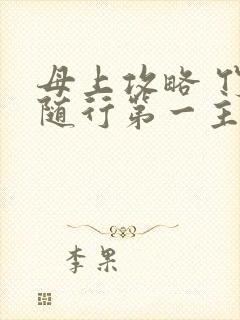 母上攻略
随行第一主
李果